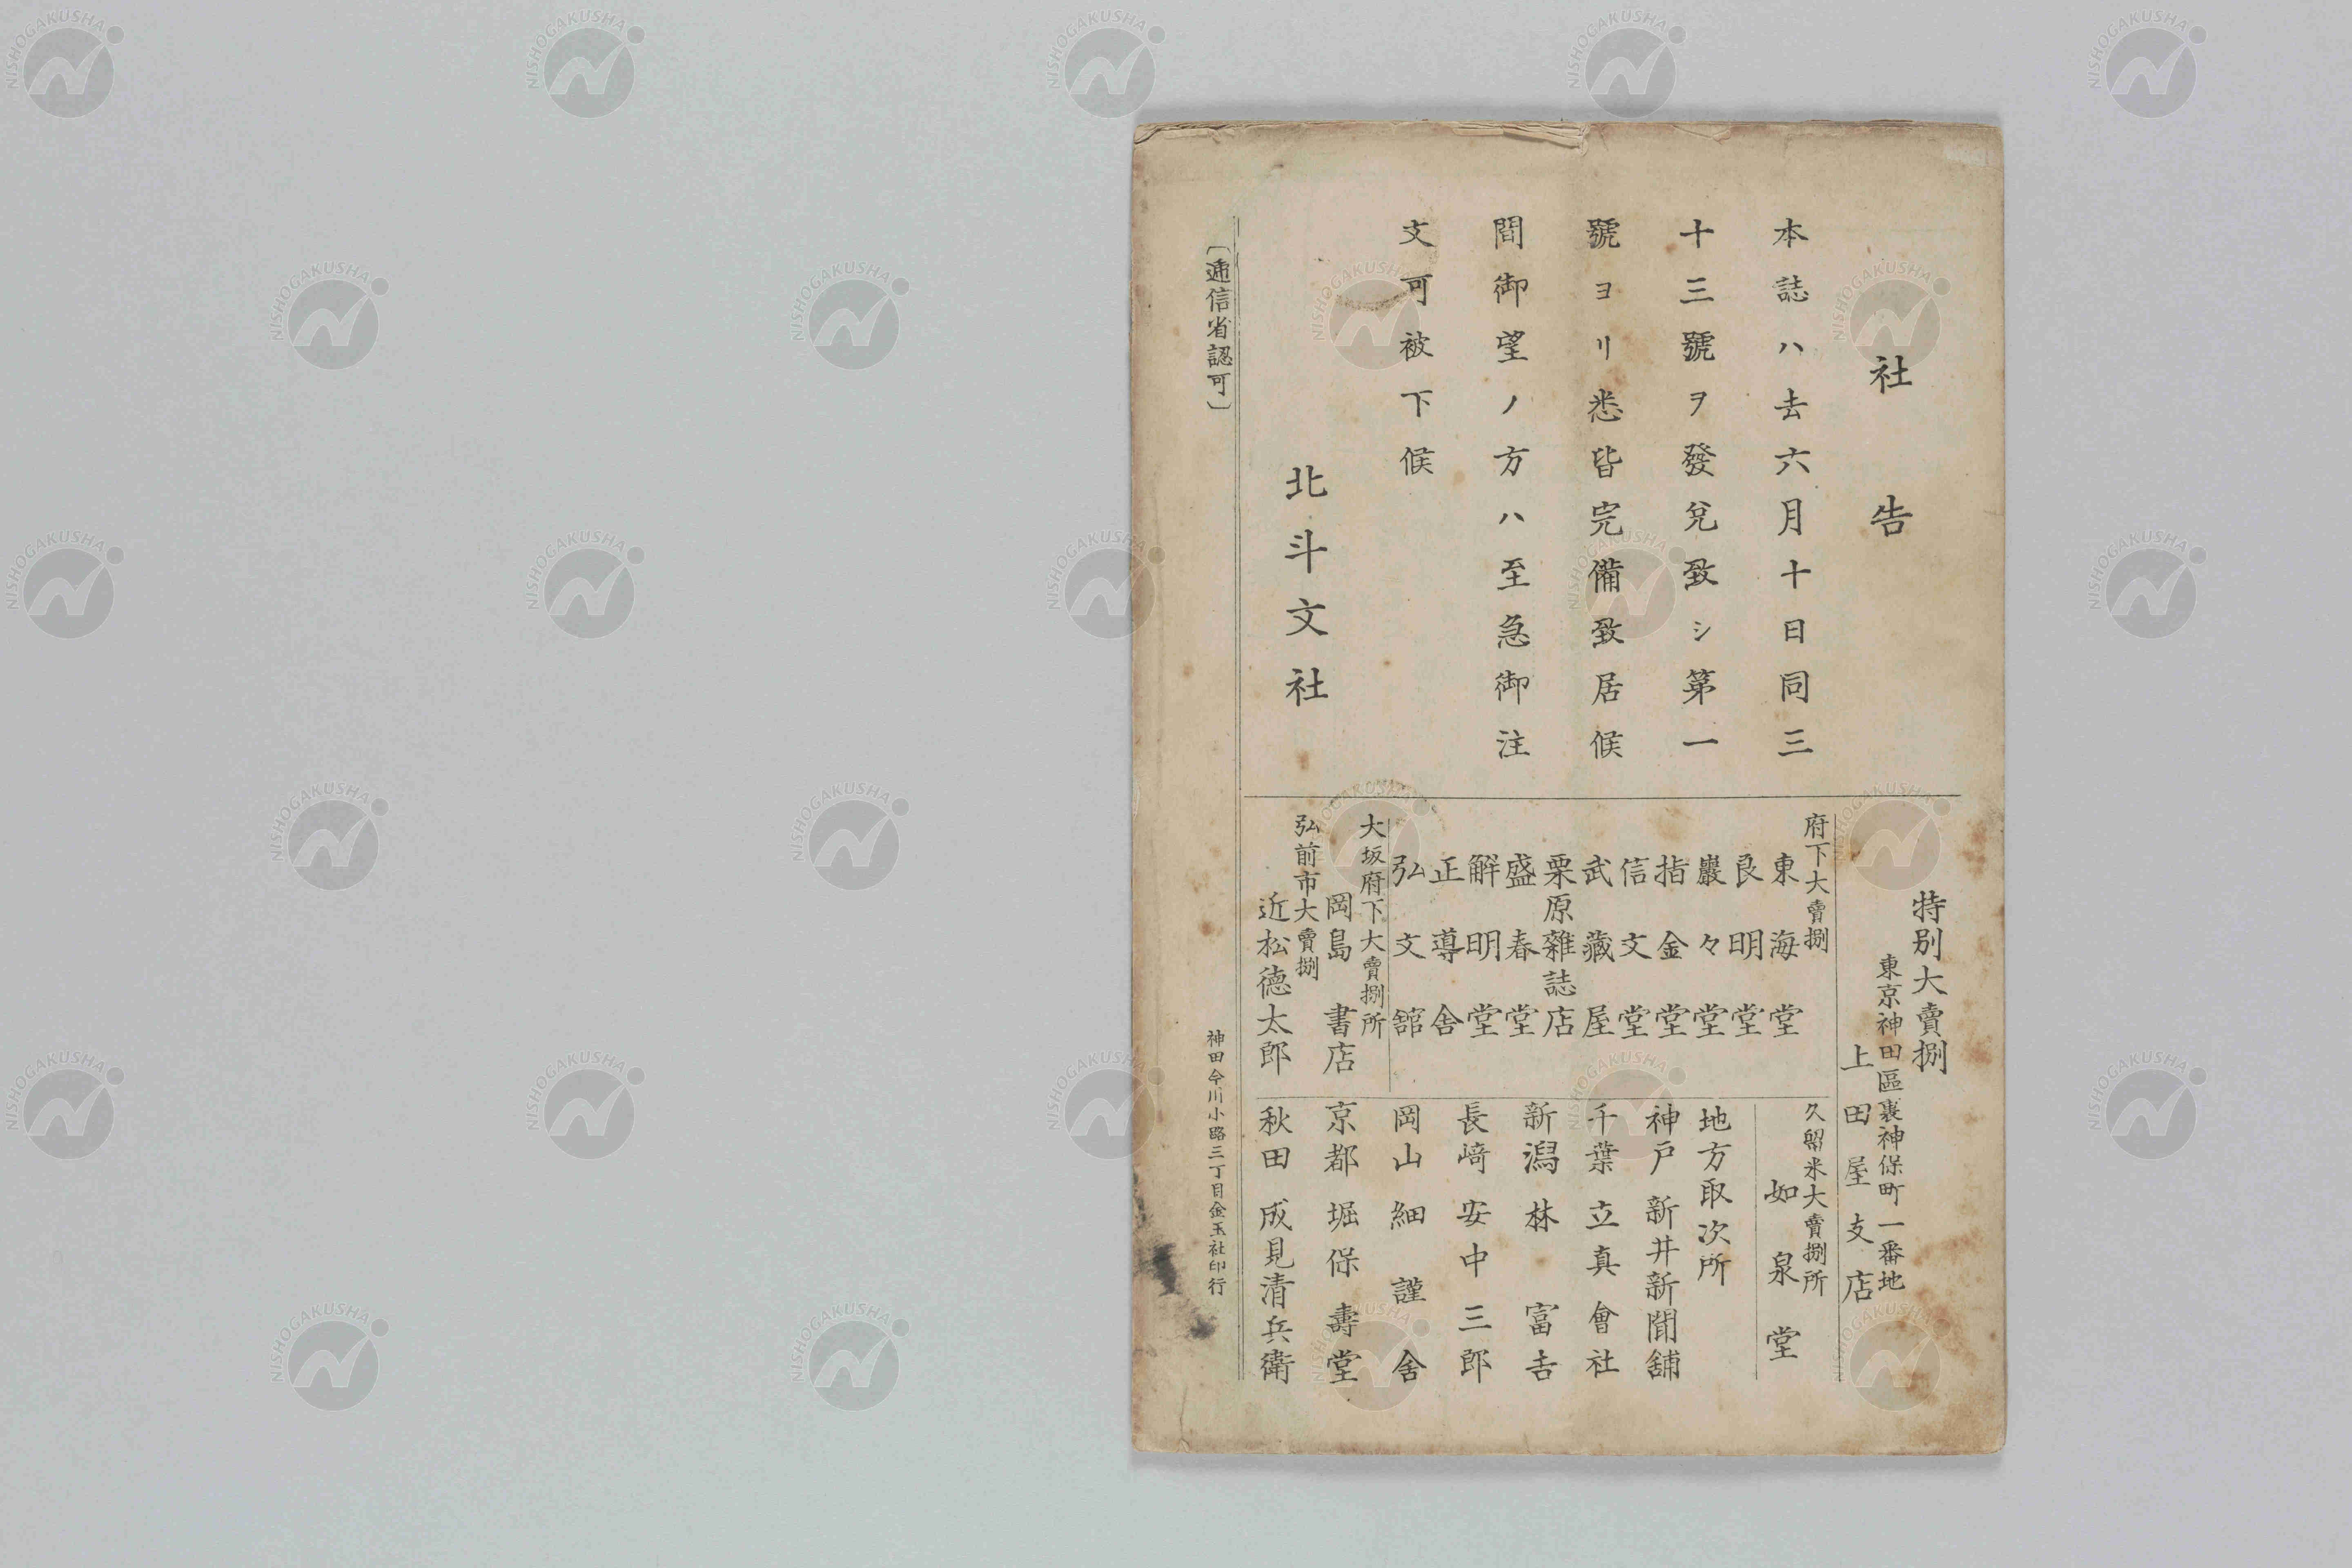 社告
本誌ハ去六月十日同三
十三號ヲ發兌致シ第一
號ヨリ悉皆完備致居候
間御望ノ方ハ至急御注
文可被下候
北斗文社
特別大賣捌
東京神田區裏神保町一番地
上田屋支店
府下大賣捌
東海堂
良明堂
巖々堂
指金堂
信文堂
武藏屋
栗原雜誌店
盛春堂
解明堂
正導舎
弘文舘
大坂府下大賣捌所
岡島書店
弘前市大賣捌
近松德太郎
久留米大賣捌所
如泉堂
地方取次所
神戸 新井新聞舗
千葉 立真會社
新潟 林富吉
長崎 安中三郎
岡山 細謹舍
京都 堀保壽堂
秋田 成見清兵衛
〔遞信省認可〕
神田今川小路三丁目金玉社印行
NISHOGAKUSHA